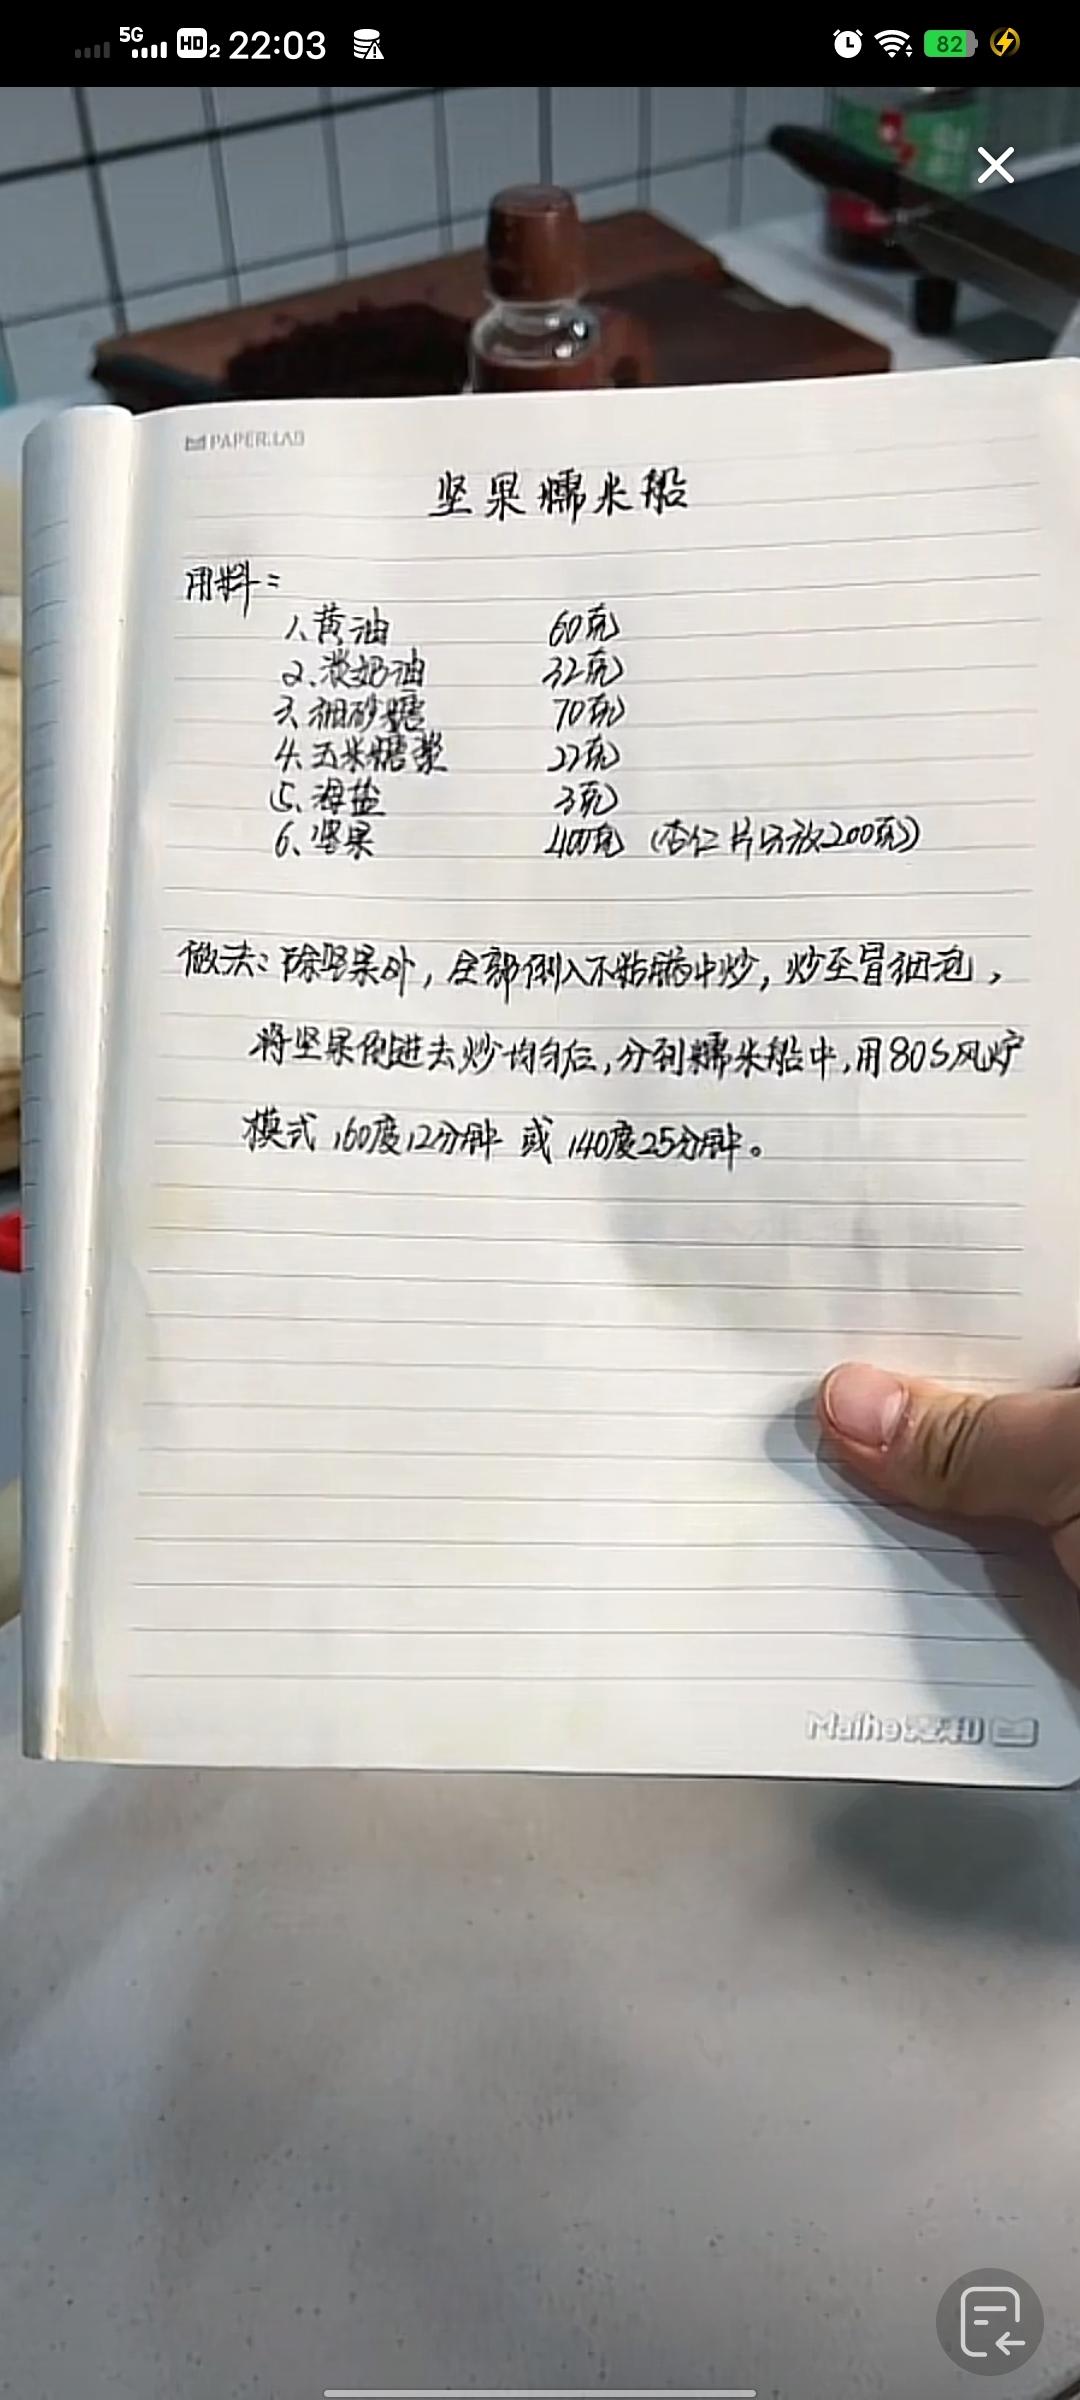 5G HD 2 22:03 82
PAPER.LAB
坚果糯米船
用料:
1、黄油 60克
2、淡奶油 32克
3、细砂糖 70克
4、玉米糖浆 22克
5、海盐 3克
6、坚果 400克 (杏仁片只放200克)
做法:除坚果外,全部倒入不粘锅中炒,炒至冒细泡,
将坚果倒进去炒均匀后,分到糯米船中,用80S风炉
模式160度12分钟 或 140度25分钟。
Maihe麦和